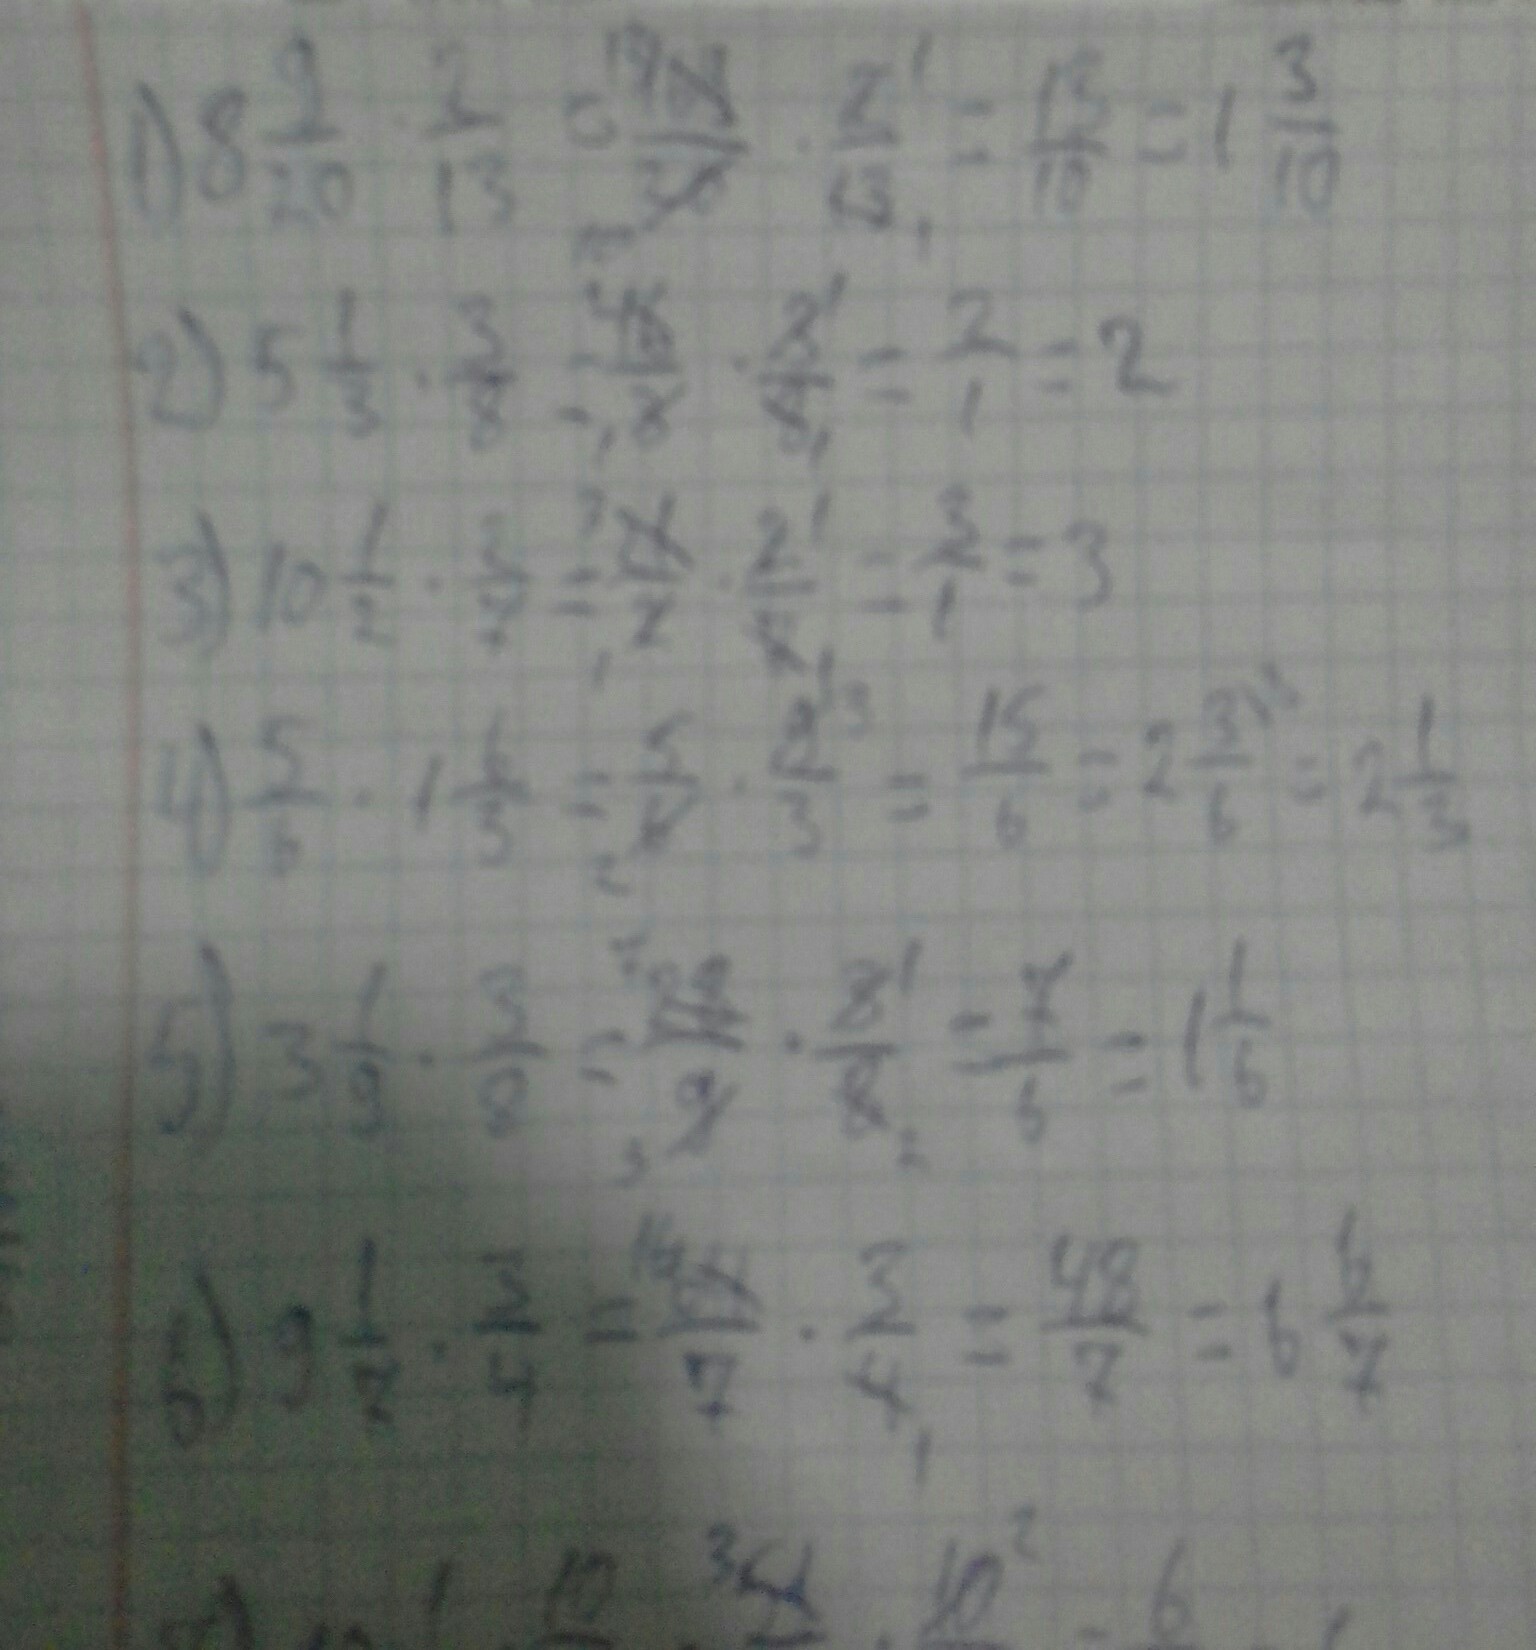 1) 8 9/20 · 2/13 = 169/20 · 2/13 = 13/10 = 1 3/10
2) 5 1/3 · 3/8 = 16/3 · 3/8 = 2/1 = 2
3) 10 1/2 · 2/7 = 21/2 · 2/7 = 3/1 = 3
4) 5/6 · 1 6/3 = 5/6 · 9/3 = 15/6 = 2 3/6 = 2 1/3
5) 3 1/9 · 3/8 = 28/9 · 3/8 = 7/6 = 1 1/6
6) 9 1/7 · 3/4 = 64/7 · 3/4 = 48/7 = 6 6/7